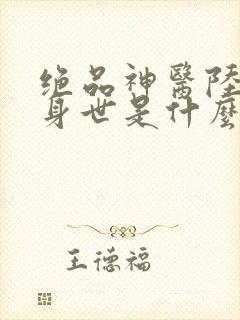 绝品神醫陸
身世是什麼
王德福